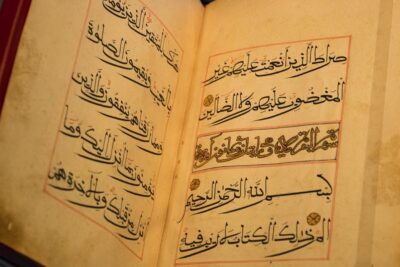 صراط الذين أنعمت عليهم غير
المغضوب عليهم ولا الضالين
بسم الله الرحمن الرحيم
الم ذلك الكتاب لا ريب فيه
هدى للمتقين الذين يؤمنون
بالغيب ويقيمون الصلوة
ومما رزقناهم ينفقون والذين
يؤمنون بما أنزل إليك وما
أنزل من قبلك وبالآخرة هم